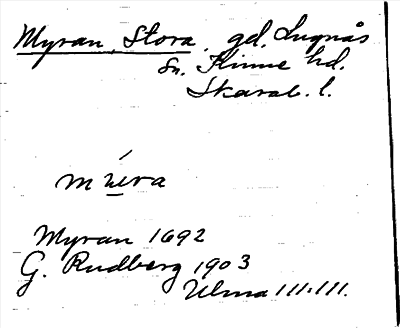 Myran, Stora, gd. Lugnås
Sn. Kinne hd.
Skarab. l.
Myran 1692
G. Rudberg 1903
Ulma 111:111.